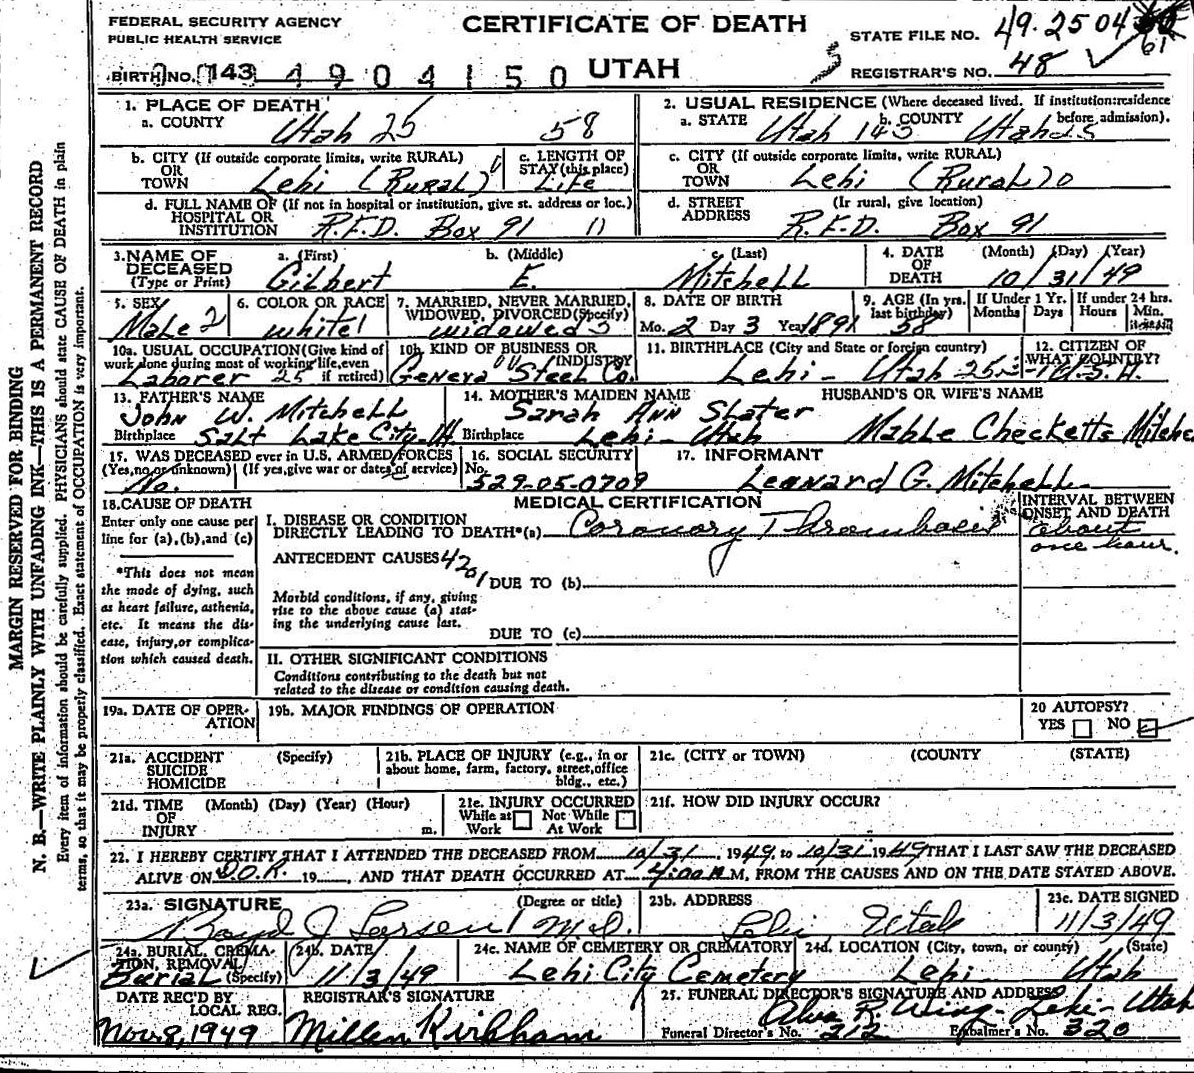 FEDERAL SECURITY AGENCY
PUBLIC HEALTH SERVICE
CERTIFICATE OF DEATH
UTAH
STATE FILE NO. 49-2504
61
REGISTRAR'S NO. 48
BIRTH NO. 143 4904150
1. PLACE OF DEATH
a. COUNTY Utah 25 58
2. USUAL RESIDENCE (Where deceased lived. If institution: residence before admission).
a. STATE Utah 143 b. COUNTY Utah 25
b. CITY (If outside corporate limits, write RURAL)
OR
TOWN Lehi (Rural)
c. LENGTH OF
STAY (this place)
Life
c. CITY (If outside corporate limits, write RURAL)
OR
TOWN Lehi (Rural) 0
d. FULL NAME OF (If not in hospital or institution, give st. address or loc.)
HOSPITAL OR
INSTITUTION R.F.D. Box 91
d. STREET (If rural, give location)
ADDRESS R.F.D. Box 91
3. NAME OF
DECEASED
(Type or Print)
a. (First) Gilbert
b. (Middle) E.
c. (Last) Mitchell
4. DATE
OF
DEATH
(Month) (Day) (Year)
10/31/49
5. SEX
Male 2
6. COLOR OR RACE
White 1
7. MARRIED, NEVER MARRIED,
WIDOWED, DIVORCED (Specify)
Widowed 3
8. DATE OF BIRTH
Mo. 2 Day 3 Year 1891
9. AGE (In yrs. last birthday)
58
If Under 1 Yr.
Months Days
If under 24 hrs.
Hours Min.
10a. USUAL OCCUPATION (Give kind of
work done during most of working life, even
if retired)
Laborer 25
10b. KIND OF BUSINESS OR
INDUSTRY
Geneva Steel Co.
11. BIRTHPLACE (City and State or foreign country)
Lehi - Utah 25
12. CITIZEN OF
WHAT COUNTRY?
U.S.A.
13. FATHER'S NAME
John W. Mitchell
Birthplace Salt Lake City - Ut.
14. MOTHER'S MAIDEN NAME
Sarah Ann Slater
Birthplace Lehi - Utah
HUSBAND'S OR WIFE'S NAME
Mable Checketts Mitche
15. WAS DECEASED ever in U.S. ARMED FORCES
(Yes, no or unknown) (If yes, give war or dates of service)
No.
16. SOCIAL SECURITY
No.
529-05-0709
17. INFORMANT
Leonard G. Mitchell
18. CAUSE OF DEATH
Enter only one cause per
line for (a), (b), and (c)
*This does not mean
the mode of dying, such
as heart failure, asthenia,
etc. It means the dis-
ease, injury, or complica-
tion which caused death.
MEDICAL CERTIFICATION
I. DISEASE OR CONDITION
DIRECTLY LEADING TO DEATH*(a) Coronary Thrombosis
INTERVAL BETWEEN
ONSET AND DEATH
about
one hour.
ANTECEDENT CAUSES 4201
DUE TO (b)
Morbid conditions, if any, giving
rise to the above cause (a) stat-
ing the underlying cause last.
DUE TO (c)
II. OTHER SIGNIFICANT CONDITIONS
Conditions contributing to the death but not
related to the disease or condition causing death.
19a. DATE OF OPER-
ATION
19b. MAJOR FINDINGS OF OPERATION
20 AUTOPSY?
YES NO
21a. ACCIDENT (Specify)
SUICIDE
HOMICIDE
21b. PLACE OF INJURY (e.g., in or
about home, farm, factory, street, office
bldg., etc.)
21c. (CITY OR TOWN) (COUNTY) (STATE)
21d. TIME (Month) (Day) (Year) (Hour)
OF
INJURY m.
21e. INJURY OCCURRED
While at Not While
Work At Work
21f. HOW DID INJURY OCCUR?
22. I HEREBY CERTIFY THAT I ATTENDED THE DECEASED FROM 10/31, 1949, to 10/31 1949 THAT I LAST SAW THE DECEASED
ALIVE ON 19, AND THAT DEATH OCCURRED AT 4:00 M, FROM THE CAUSES AND ON THE DATE STATED ABOVE.
23a. SIGNATURE (Degree or title)
Boyd J Larsen M.D.
23b. ADDRESS
Lehi Utah
23c. DATE SIGNED
11/3/49
24a. BURIAL, CREMA-
TION, REMOVAL
(Specify)
Burial
24b. DATE
11/3/49
24c. NAME OF CEMETERY OR CREMATORY
Lehi City Cemetery
24d. LOCATION (City, town, or county) (State)
Lehi Utah
DATE REC'D BY
LOCAL REG.
Nov. 8, 1949
REGISTRAR'S SIGNATURE
Kirkham
25. FUNERAL DIRECTOR'S SIGNATURE AND ADDRESS
Alva R. Wing - Lehi - Utah
Funeral Director's No. 212 Embalmer's No. 320
MARGIN RESERVED FOR BINDING
N. B.—WRITE PLAINLY WITH UNFADING INK—THIS IS A PERMANENT RECORD
Every item of information should be carefully supplied. PHYSICIANS should state CAUSE OF DEATH in plain
terms, so that it may be properly classified. Exact statement of OCCUPATION is very important.